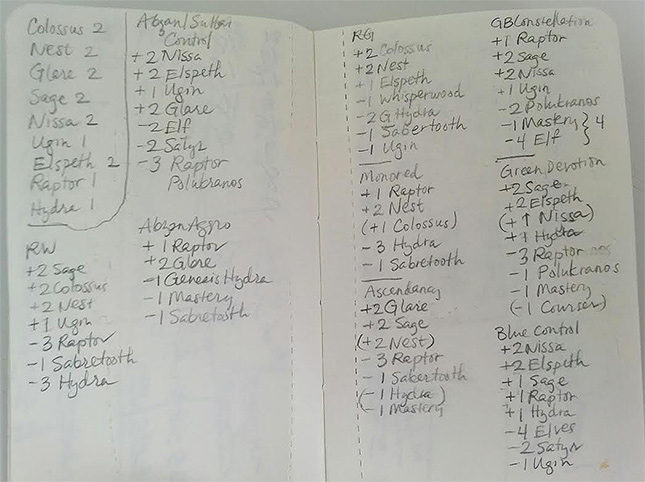 Colossus 2
Nest 2
Glare 2
Sage 2
Nissa 2
Ugin 1
Elspeth 2
Raptor 1
Hydra 1
RW
+2 Sage
+2 Colossus
+2 Nest
+1 Ugin
-3 Raptor
-1 Sabretooth
-3 Hydra
Abzan/Sultai
Control
+2 Nissa
+2 Elspeth
+1 Ugin
+2 Glare
-2 Elf
-2 Satyr
-3 Raptor
Polukranos
Abzan Aggro
+1 Raptor
+2 Glare
-1 Genesis Hydra
-1 Mastery
-1 Sabretooth
RG
+2 Colossus
+2 Nest
+1 Elspeth
-1 Whisperwood
-2 G Hydra
-1 Sabertooth
-1 Ugin
Monored
+1 Raptor
+2 Nest
(+1 Colossus)
-3 Hydra
-1 Sabretooth
Ascendancy
+2 Glare
+2 Sage
(+2 Nest)
-3 Raptor
-1 Sabertooth
(-1 Hydra)
(-1 Mastery
GB Constellation
+1 Raptor
+2 Sage
+2 Nissa
+1 Ugin
-2 Polukranos
-1 Mastery } 4
-4 Elf
Green Devotion
+2 Sage
+2 Elspeth
(+1 Nissa)
+1 Hydra
-3 Raptor
-1 Polukranos
-1 Mastery
(-1 Courser)
Blue Control
+2 Nissa
+2 Elspeth
+1 Sage
+1 Raptor
+1 Hydra
-4 Elves
-2 Satyr
-1 Ugin